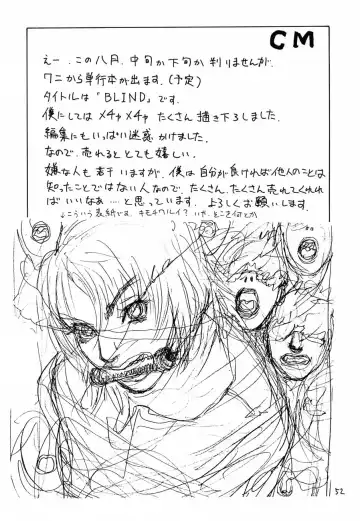 CM
えー。この八月、中旬か下旬か判りませんが、
ワニから単行本が出ます。(予定)
タイトルは「BLIND」です。
僕にしては メチャメチャ たくさん 描き下ろしました。
編集にもいっぱい迷惑 かけました。
なので、売れると とても 嬉しい。
嫌な人も若干 いますが、僕は自分が良ければ他人のことは
知ったことではない人なので、たくさん、たくさん 売れてくれれ
ば いいなぁ…と思っています。よろしくお願いします。
↓こういう表紙です。キモチワルイ?
52